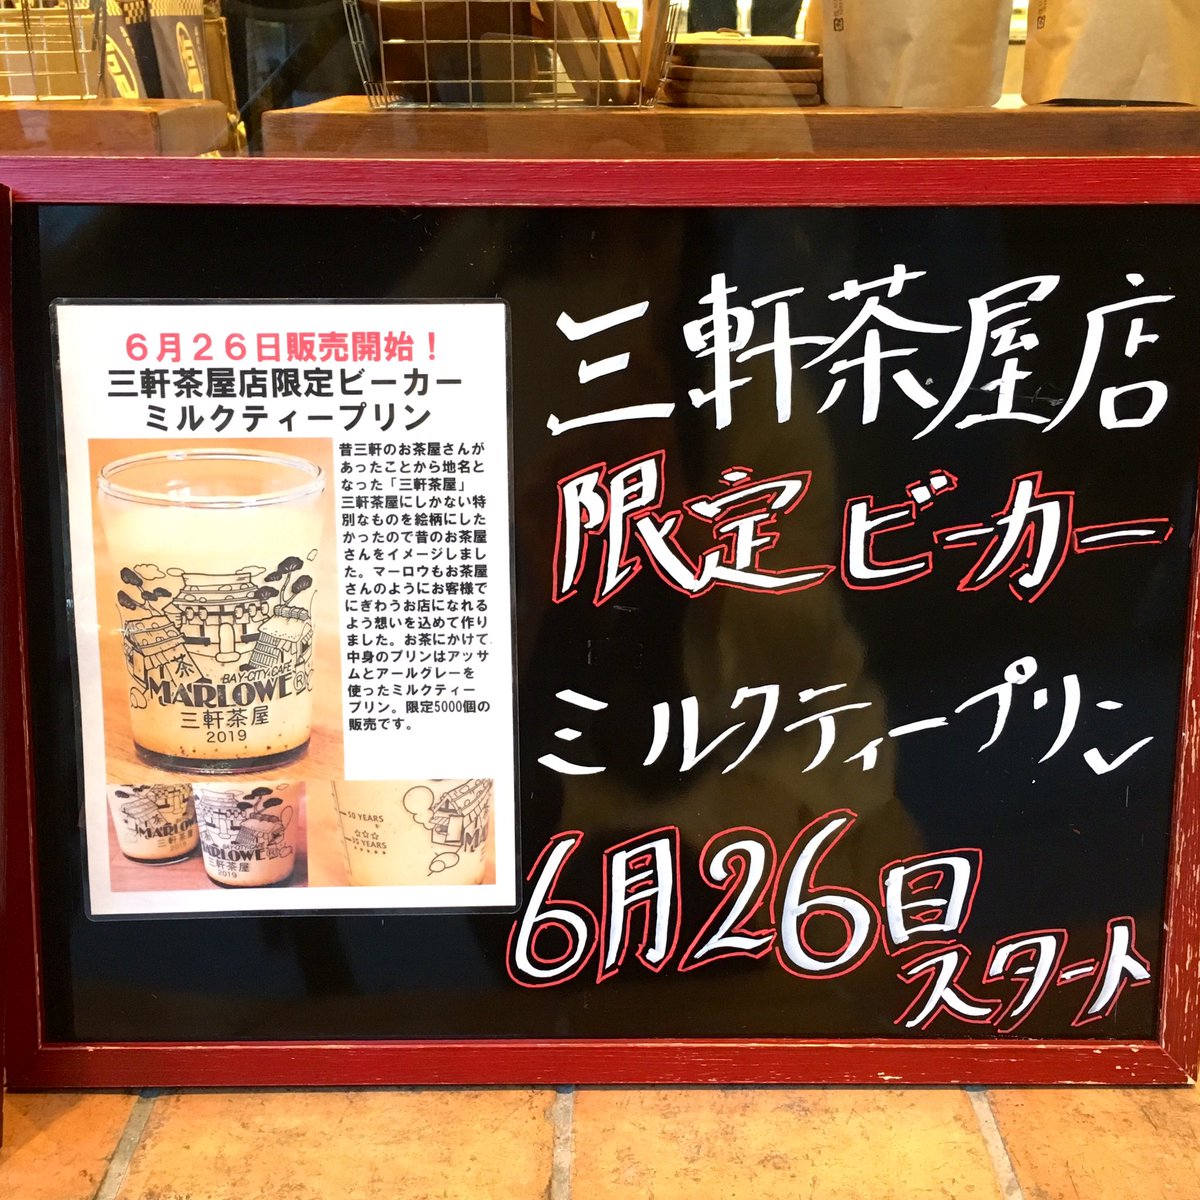 6月26日販売開始！
三軒茶屋店限定ビーカー
ミルクティープリン
昔三軒のお茶屋さんが
あったことから地名と
なった「三軒茶屋」
三軒茶屋にしかない特
別なものを絵柄にした
かったので昔のお茶屋
さんをイメージしまし
た。マーロウもお茶屋
さんのようにお客様で
にぎわうお店になれる
よう想いを込めて作り
ました。お茶にかけて
中身のプリンはアッサ
ムとアールグレーを
使ったミルクティー
プリン。限定5000個の
販売です。
茶
BAY-CITY-CAFE
MARLOWE®
三軒茶屋
2019
MARLOWE
三軒茶屋
茶
BAY-CITY-CAFE
MARLOWE®
三軒茶屋
2019
50 YEARS
☆☆☆
35 YEARS
★★★★★
三軒茶屋店
限定ビーカー
ミルクティープリン
6月26日
スタート